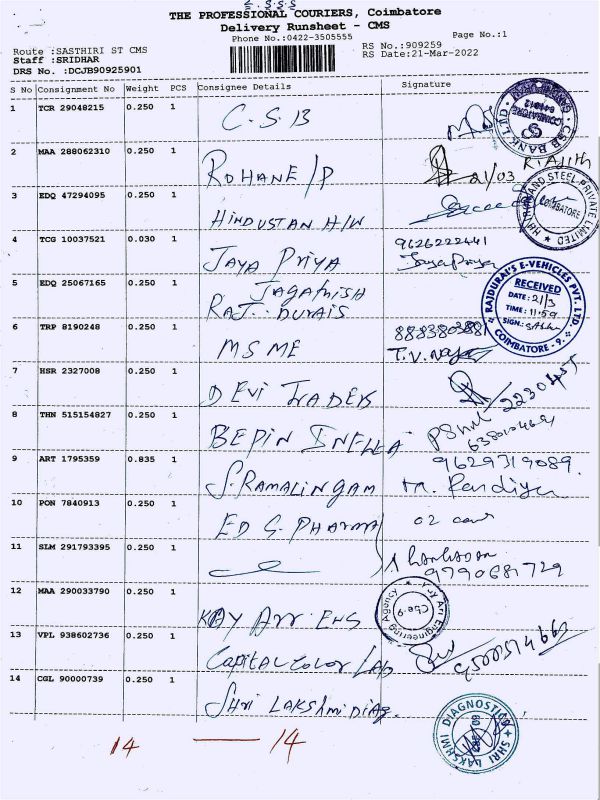 THE PROFESSIONAL COURIERS, Coimbatore
Delivery Runsheet - CMS
Phone No.:0422-3505555
Page No.:1
Route :SASTHIRI ST CMS
RS No.:909259
Staff :SRIDHAR
RS Date:21-Mar-2022
DRS No. :DCJB90925901
S No Consignment No Weight PCS Consignee Details Signature
1 TCR 29048215 0.250 1 C.S.B
2 MAA 288062310 0.250 1 ROHANE/P 21/03 R. Ajith
3 EDQ 47294095 0.250 1 HINDUSTAN H/W
4 TCG 10037521 0.030 1 JAYA PRIYA 9626222441 Jayapriya
5 EDQ 25067165 0.250 1 Jagathish RAJ. DURAIS
6 TRP 8190248 0.250 1 MSME 8883803881 T.V.
7 HSR 2327008 0.250 1 DEVI TRADERS
8 THN 515154827 0.250 1 BEPIN
9 ART 1795359 0.835 1 S. RAMALINGAM 9629319089. M. Pandiyan
10 PON 7840913 0.250 1 ED S. PHARMA 02
11 SLM 291793395 0.250 1 9790681729
12 MAA 290033790 0.250 1 KAY ARR ENG
13 VPL 938602736 0.250 1 Capital Color Lab
14 CGL 90000739 0.250 1 SHRI LAKSHMI DIAG.
14 — 14
CSB BANK LTD.
COIMBATORE
STEEL PRIVATE LIMITED
COIMBATORE
RAJDURAI'S E-VEHICLES PVT. LTD.
RECEIVED
DATE: 21/3
TIME: 11:59
SIGN:
COIMBATORE - 9.
Kay Arr Engineering Agency
Cbe-9.
SHRI LAKSHMI DIAGNOSTICS